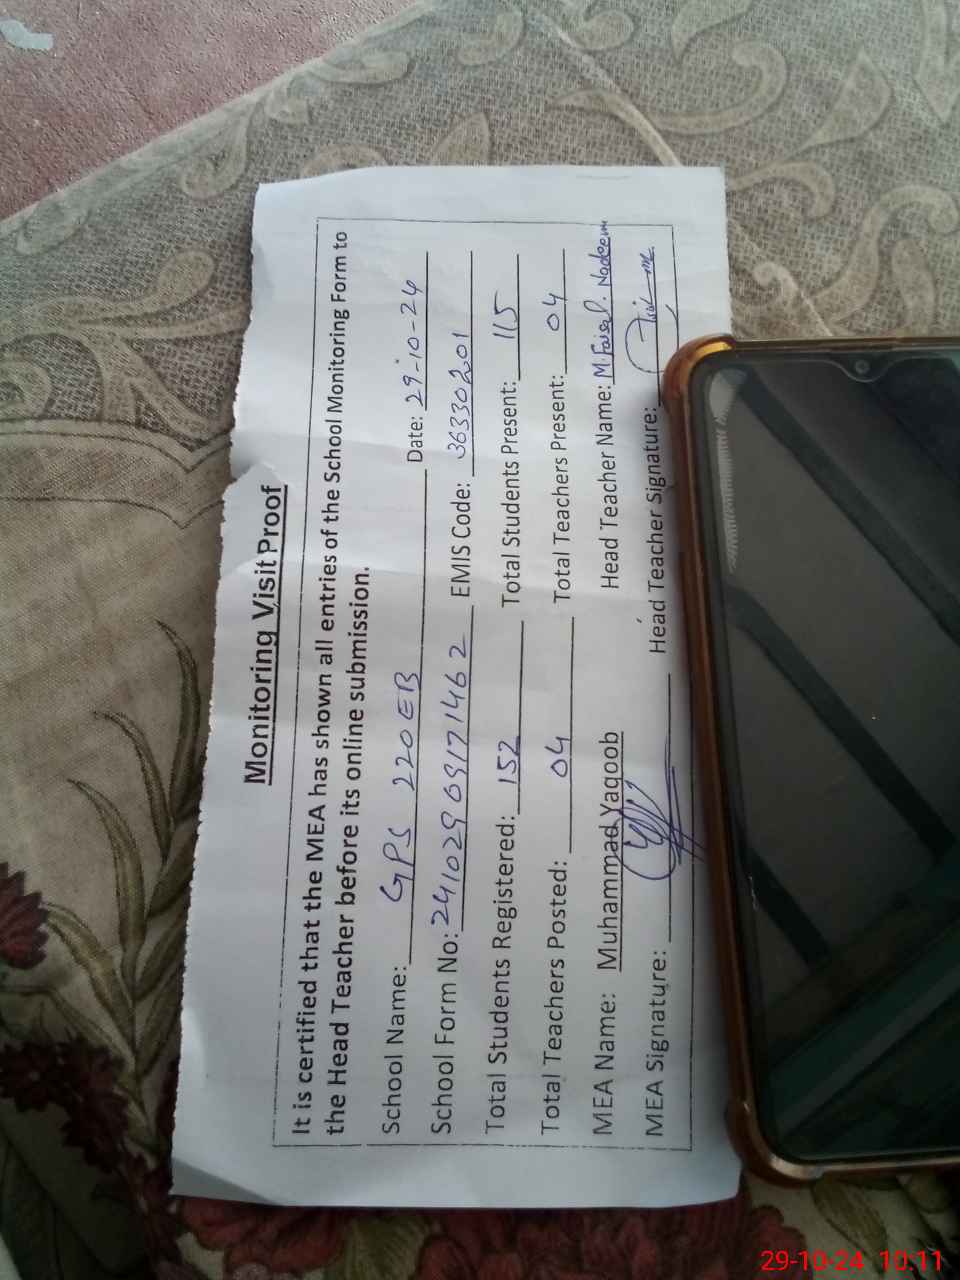 Monitoring Visit Proof
It is certified that the MEA has shown all entries of the School Monitoring Form to
the Head Teacher before its online submission.
School Name: GPS 220EB Date: 29-10-24
School Form No: 24102909171462 EMIS Code: 36330201
Total Students Registered: 152 Total Students Present: 115
Total Teachers Posted: 04 Total Teachers Present: 04
MEA Name: Muhammad Yaqoob Head Teacher Name: M. Faisal. Nadeem
MEA Signature: Head Teacher Signature:
29-10-24 10:11